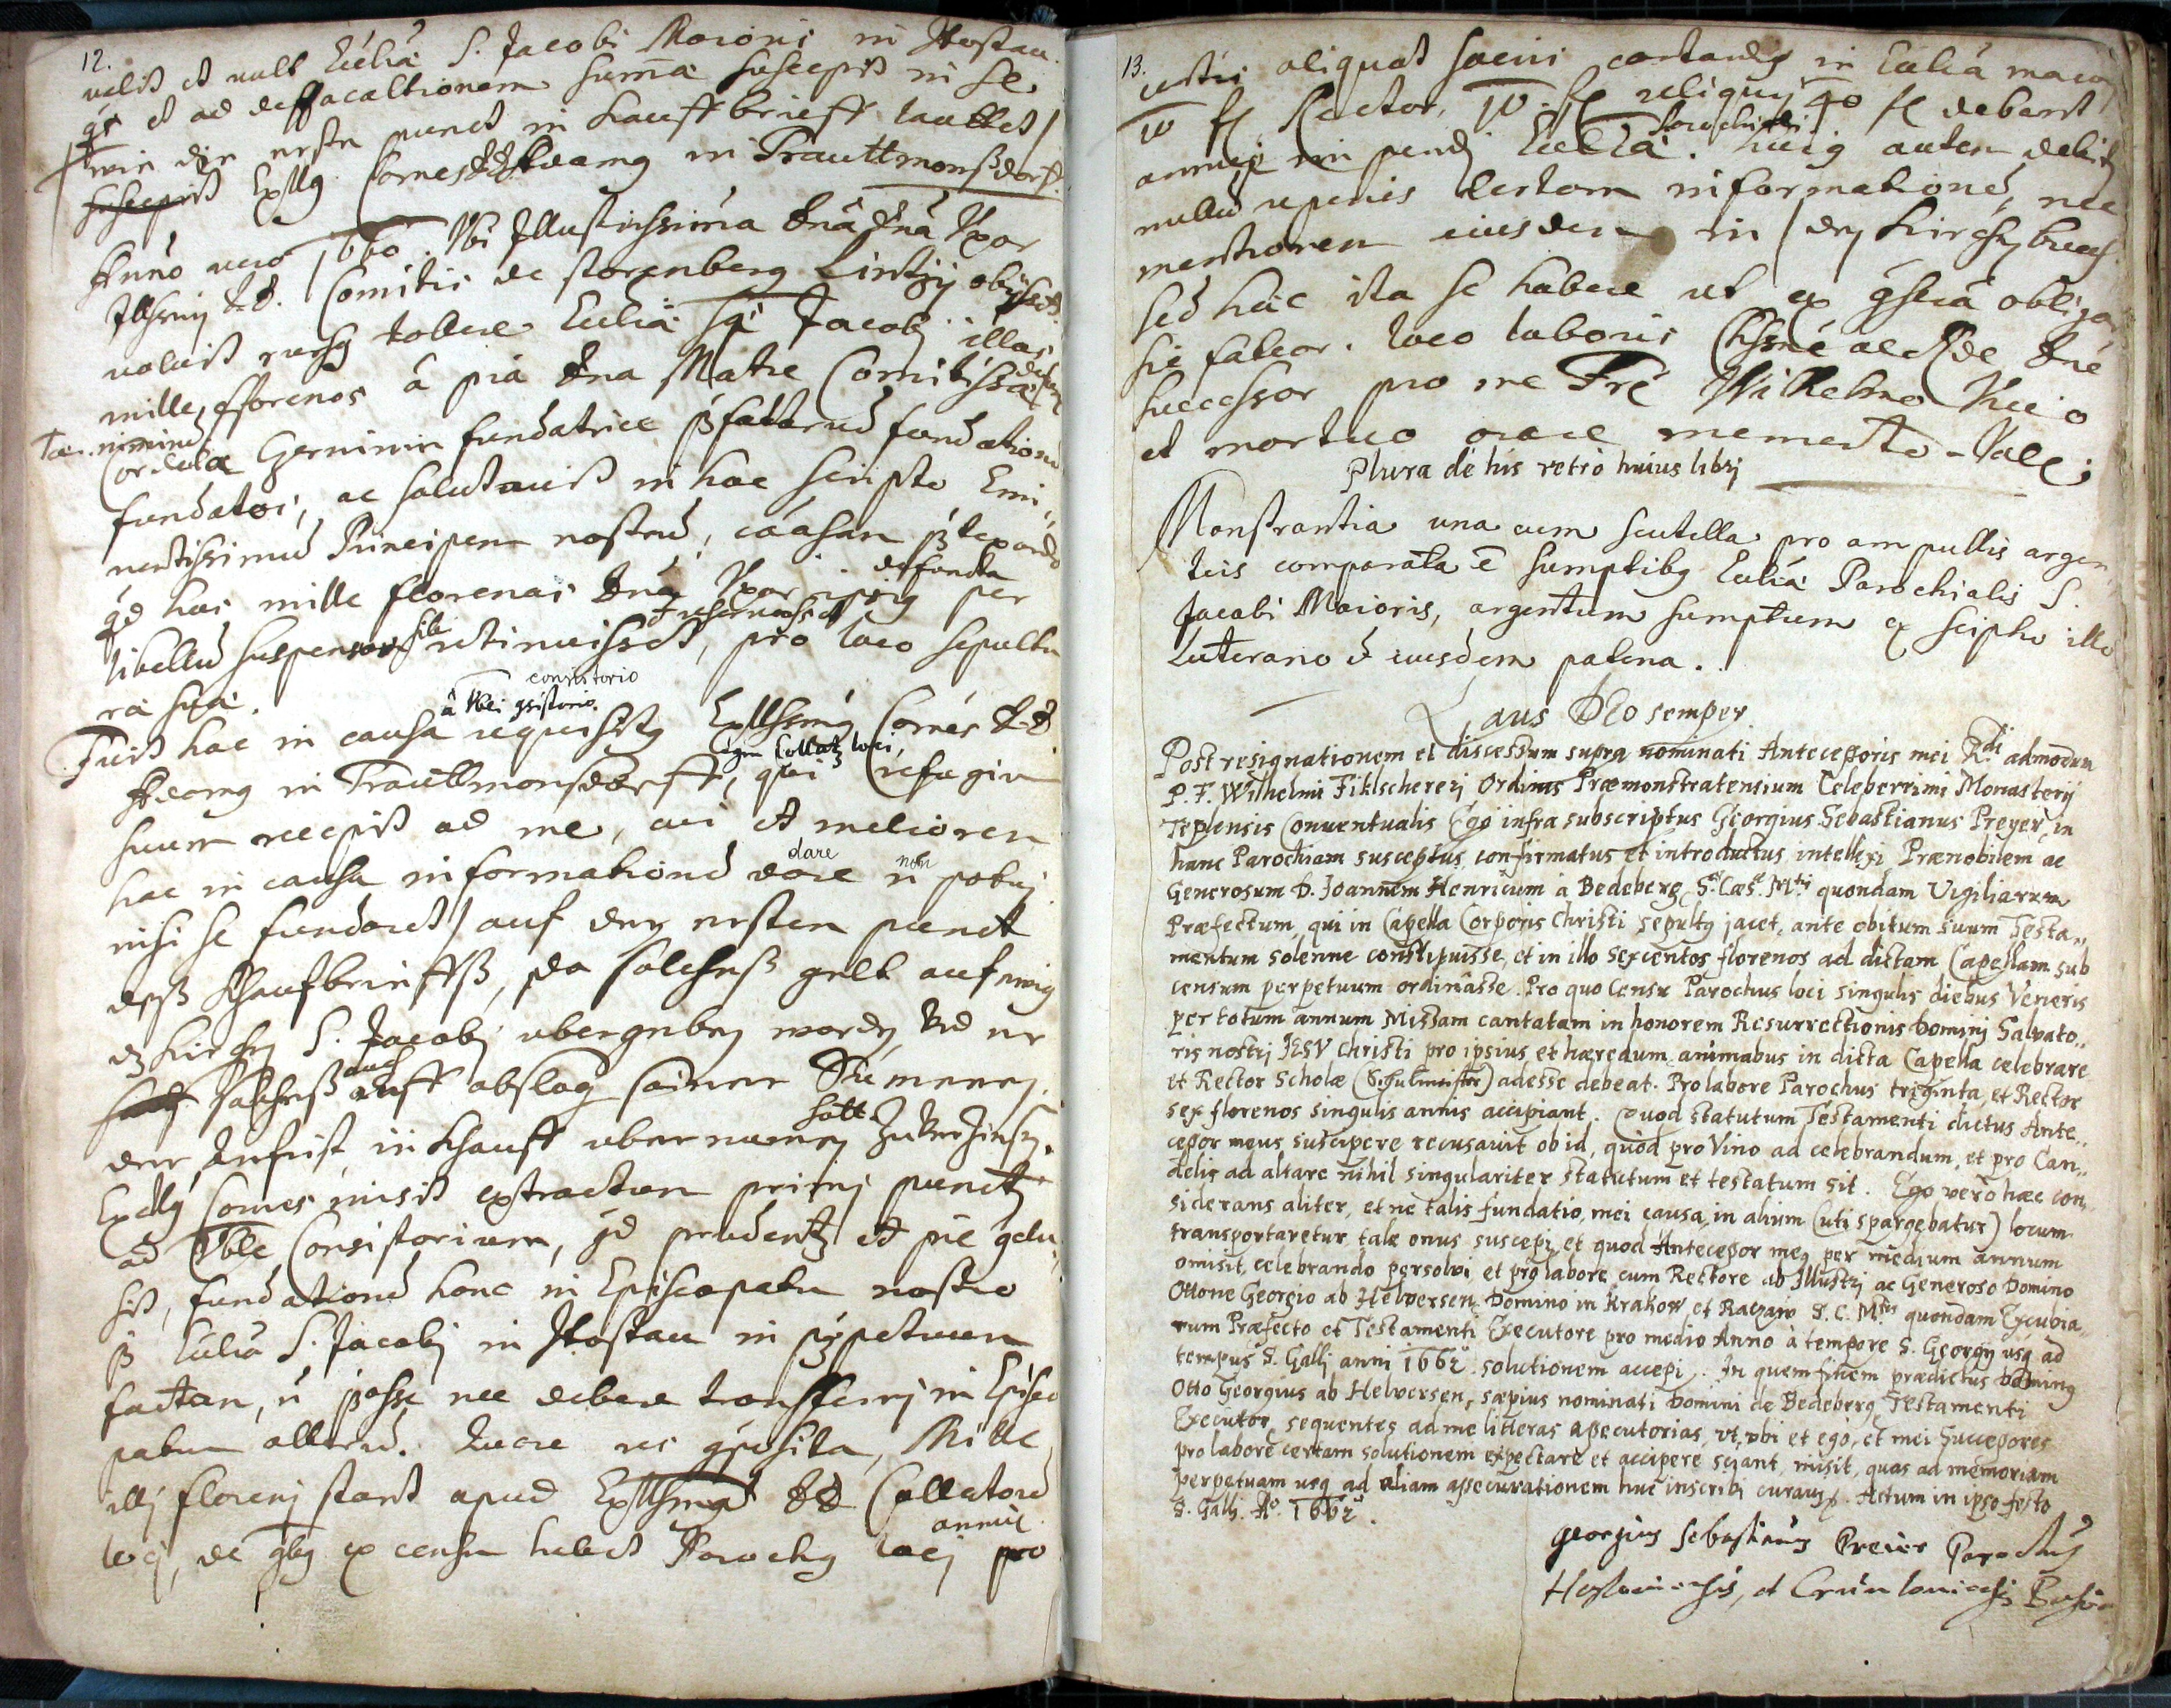 12.
velit et vult Eccliã S. Jacobi Maioris in Hostau
qr et ad deffacaltionem summã suscepit in se
wie der erste punct in Kauffbrieff lauttet /
suscepit Exllq Comes Adamq in Trauttmonßdorf.
Anno vero 1660. Vbi Illustrissima Dnã Dnã Vxor
Illssimj D.D. Comitis de storenberg Lintzij obijsset
voluit rursq tollere Ecclia Sti Jacobj illos
mille florenos á pia Dna Matre Comitissa
Cordula Czerninin fundatrice fundationi
fundatoi, ac salutavit in hoc scripto Emi,,
nentissimũ Principem nostrũ, causam
qd hos mille florenos Dna Vxor ipsiq defuncta per
libellũ suspensor sibi retinuisset, reservasset, pro loco sepultu
ra suã.
consistorio
Fuit hac in causa á Vbli gsistorio requisitq Exllssimq Comes D.D.
Adamq in Trauttmonsdorff, qm Collatz loci, qui refugium
suum recepit ad me, cui et meliorem
hac in causa informationẽ dare dare ñ non potuj
nisi se fundaret / auf den ersten punct
deß Khaufbrieffß, da solcheß gelt auf ewig
dz Kirchen S. Jacobj vbergeben worden, Vnd er
solcheß auch auff abslag seiner Summen,
der Anfrist in Khauff vbernumen hatt Zuverzinsen.
Exllq Comes misit extractum primj punctj
ad Vble Consistorium, qd prudentz et pie gclu,,
sit, fundationẽ hanc in Episcopatu nostro
p Eccliã S. Jacobj in Hostau in perpetuum
factam, ñ posse nec debere transferrj in Episco
patum alterũ. Quare res gposita, Mille
illj florenj stant apud Exllssimũ D.D. Collatorẽ
locj, de qbq ex censu habet Parochq locj annue pro
13.
aliquot sacris cantandis in Eccliã maio
10 fl Rector, 10. fl reliquj 40 fl debent
annue Eccliã Parochiali. huiq autem debitj
nullũ reperies certam informationẽ, nec
mentionem eiusdem in / den Kirchenbuch.
sed hãc ita se habere ut ex gscia obligor
sic fateor. loco laboris Chsme ac Rde Dne
successor pro me Fre Wilhelmo Vivo
et mortuo orare memento - Vale.
Plura de his retrò huius librj
Monstrantia una cum scutella pro ampullis argen,,
teis comparata ẽ sumptibq Eccliã Parochialis S.
Jacobi Maioris, argentum sumptum ex scipho illo
Luterano & eiusdem patena.
Laus Deo semper
Post resignationem et discessum supra nominati Antecessoris mei Rdi admodum
P. F. Wilhelmi Fiklschererj Ordinis Præmonstratensium Celeberrimi Monasterij
Teplensis Conventualis Ego infra subscriptus Georgius Sebastianus Preyer, in
hanc Parochiam susceptus, confirmatus et introductus intellexi Prænobilem ac
Generosum D. Joannem Henricum à Bedeberg, S. Cæs. Mtis quondam Vigiliarum
Præfectum, qui in Capella Corporis Christi sepultq jacet, ante obitum suum Testa,,
mentum solenne constituisse, et in illo sexcentos florenos ad dictam Capellam sub
censum perpetuum ordinâsse. Pro quo Censu Parochus loci singulis diebus Veneris
per totum annum Missam cantatam in honorem Resurrectionis Dominj Salvato,,
ris nostrj JESV Christi pro ipsius et hæredum animabus in dicta Capella celebrare
et Rector Scholæ (Schulmeister) adesse debeat. Pro labore Parochus triginta, et Rector
sex florenos singulis annis accipiant. Quod statutum Testamenti dictus Ante,,
cessor meus suscipere recusavit ob id, quòd pro Vino ad celebrandum, et pro Can,,
delis ad altare nihil singulariter statutum et testatum sit. Ego verò hæc con,,
siderans aliter, et ne talis fundatio, mei causa, in alium (uti spargebatur) locum
transportaretur tale onus suscepi, et quod Antecessor meq per medium annum
omisit, celebrando persolvi, et pro labore cum Rectore ab Illustrj ac Generoso Domino
Ottone Georgio ab Helversen, Domino in Krakow et Raczaw S. C. Mtis quondam Excubia,,
rum Præfecto et Testamenti Executore pro medio Anno à tempore S. Georgij usq ad
tempus S. Gallj anni 1662 solutionem accepi. In quem finem prædictus Dominq
Otto Georgius ab Helversen, sæpius nominati Domini de Bedeberg Testamenti
Executor, sequentes ad me litteras assecutorias, vt, vbi et ego, et mei Successores
pro labore certam solutionem expectare et accipere sciant, misit, quas ad memoriam
perpetuam usq ad aliam assecurationem huc inscribi curavj. Actum in ipso festo
S. Gallj. Ao. 1662.
Georgius Sebastianus Preier Parochus
Hostouiensis, et